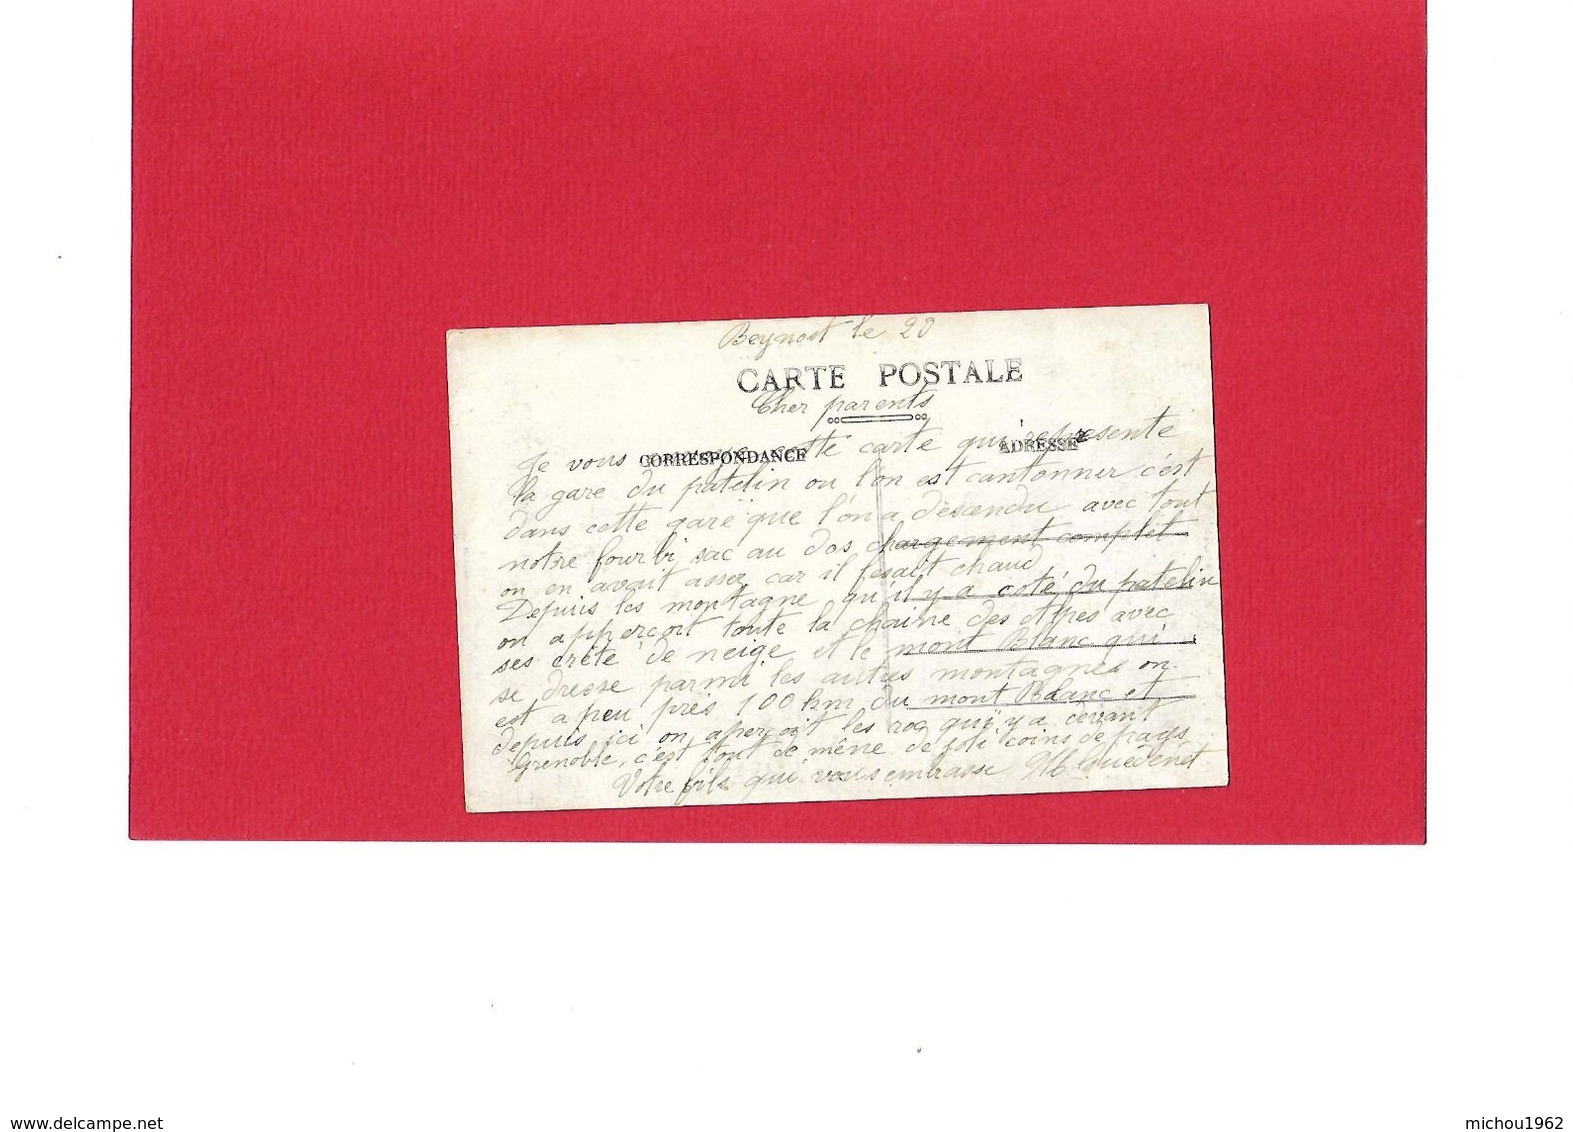 Beynost le 20
CARTE POSTALE
Cher parents
CORRESPONDANCE
ADRESSE
Je vous envoye cette carte qui représente
la gare du patelin ou l'on est cantonner c'est
dans cette gare que l'on a descendu avec tout
notre fourbi sac au dos chargement complet
on en avait assez car il fesait chaud
Depuis les montagne qu'il y a coté du patelin
on apperçoit toute la chaine des Alpes avec
ses crête de neige et le mont Blanc qui
se dresse parmi les autres montagnes on
est a peu près 100 km du mont Blanc et
depuis ici on aperçoit les roc qui y a devant
Grenoble, c'est tout de même de joli coins de pays
Votre fils qui vous embrasse Guédenet
delcampe.net
michou1962